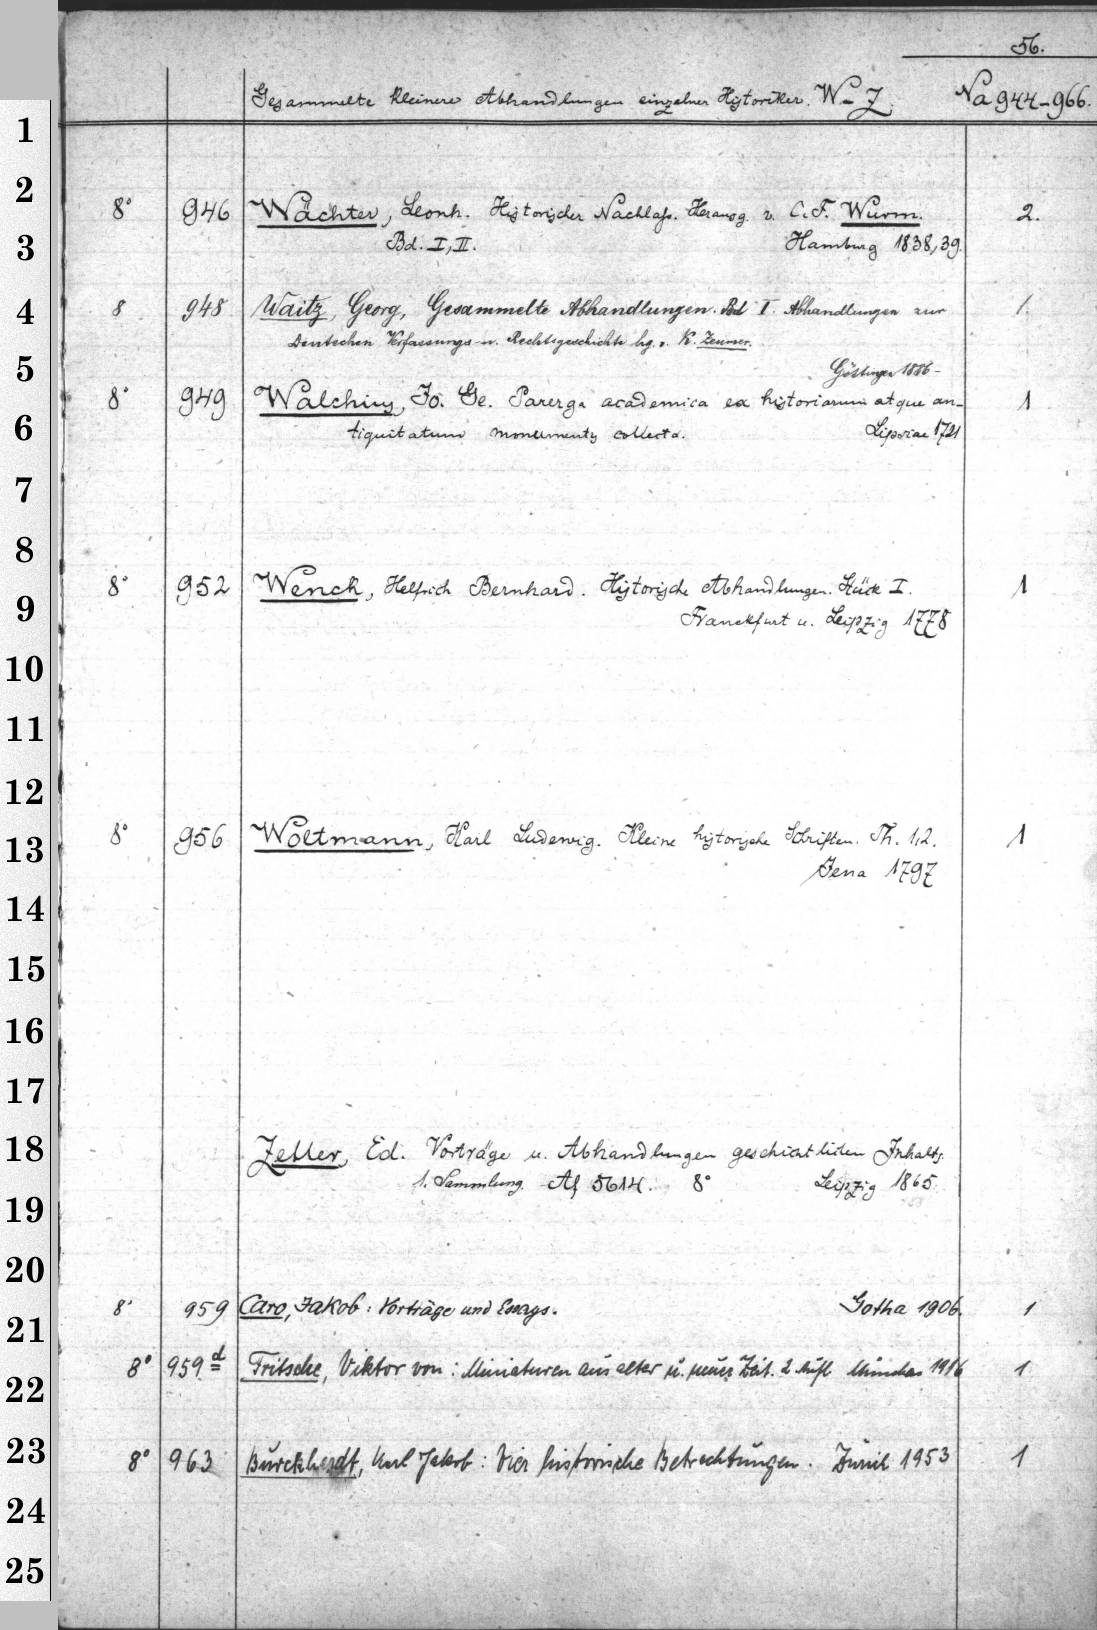 56.
Gesammelte kleinere Abhandlungen einzelner Historiker. W-Z. Na 944-966.
1
2
8° 946 Wächter, Leonh. Historischer Nachlaß. Herausg. v. C. F. Wurm. 2.
3
Bd. I, II. Hamburg 1838, 39.
4
8 948 Waitz, Georg, Gesammelte Abhandlungen. Bd I. Abhandlungen zur 1.
Deutschen Verfassungs- u. Rechtsgeschichte hg. v. K. Zeumer.
5
Göttingen 1886-
8° 949 Walchius, Jo. Ge. Parerga academica ex historiarum atque an- 1
6
tiquitatum monumentis collecta. Lipsiae 1721
7
8
8° 952 Wenck, Helfrich Bernhard. Historische Abhandlungen. Stück I. 1
9
Franckfurt u. Leipzig 1778
10
11
12
8° 956 Woltmann, Karl Ludewig. Kleine historische Schriften. Th. 1,2. 1
13
Jena 1797
14
15
16
17
18
Zeller, Ed. Vorträge u. Abhandlungen geschichtlichen Inhalts.
1. Sammlung. Af 5614. 8° Leipzig 1865.
19
20
8° 959 Caro, Jakob: Vorträge und Essays. Gotha 1906. 1
21
8° 959 d Fritsche, Viktor von: Miniaturen aus alter u. neuer Zeit. 2. Aufl München 1916 1
22
23
8° 963 Burckhardt, Karl Jakob: Vier historische Betrachtungen. Zürich 1953 1
24
25